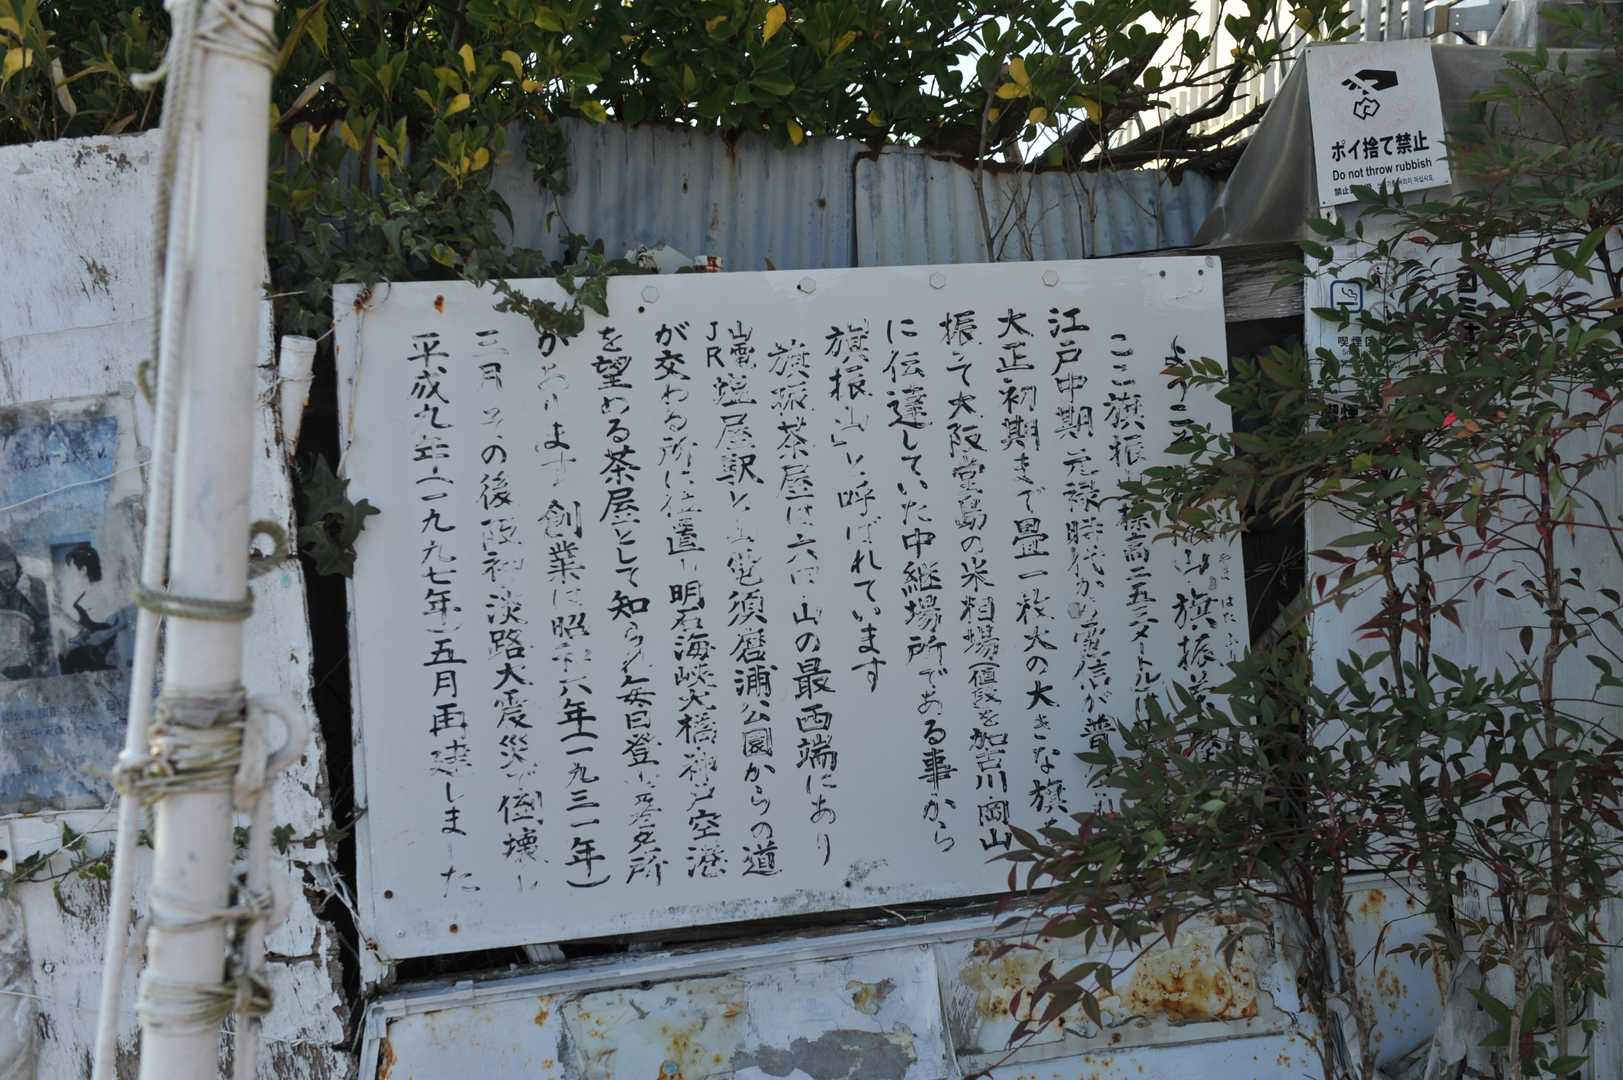 ようこそ 山旗振茶屋
ここ旗振 標高二五三メートル
江戸中期 元禄時代から電信が普
大正初期まで畳一枚大の大きな旗を
振って大阪堂島の米相場(値段)を加古川岡山
に伝達していた中継場所である事から
旗振山」と呼ばれています
旗振茶屋は六甲山の最西端にあり
山電塩屋駅と山電須磨浦公園からの道
JR
が交わる所に位置し明石海峡大橋神戸空港
を望める茶屋として知られ毎日登山署名所
があります 創業は昭和六年(一九三一年)
三月 その後阪神淡路大震災で倒壊し
平成九年(一九九七年)五月再建しました
ポイ捨て禁止
Do not throw rubbish
禁止
喫煙